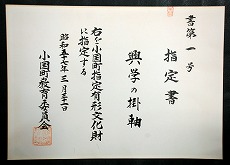 書第一号
指定書
興学の掛軸
右を小国町指定有形文化財
に指定する
昭和五十七年三月三十一日
小国町教育委員会